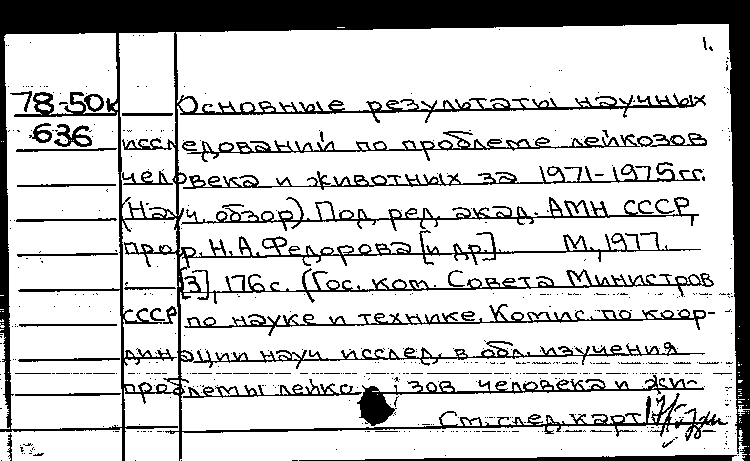 1.
78-50к Основные результаты научных
636 исследований по проблеме лейкозов
человека и животных за 1971-1975 гг.
(Науч. обзор). Под. ред. акад. АМН СССР,
проф. Н.А.Федорова [и др.] М., 1977.
[3], 176 с. (Гос. ком. Совета Министров
СССР по науке и технике. Комис. по коор-
динации науч. исслед. в обл. изучения
проблемы лейкозов человека и жи-
См. след. карт